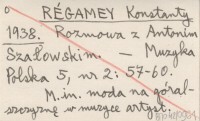 o RÉGAMEY Konstanty
1938. Rozmowa z Antonim
Szałowskim. — Muzyka
Polska 5, nr 2: 57-60.
M.in. moda na góral-
szczyznę w muzyce artyst.